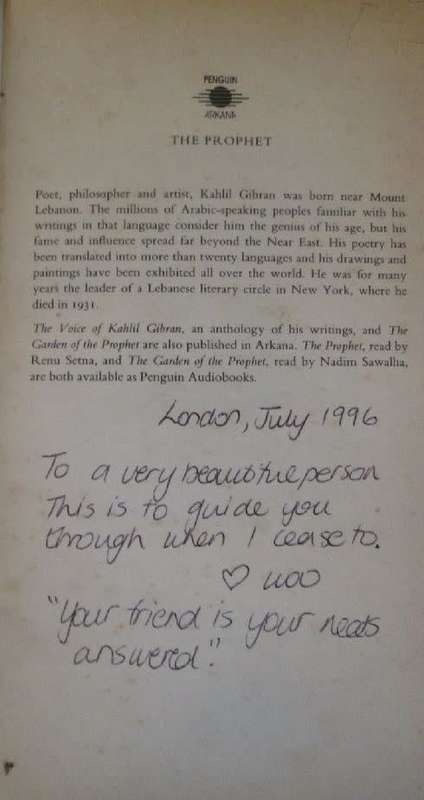 PENGUIN
ARKANA
THE PROPHET
Poet, philosopher and artist, Kahlil Gibran was born near Mount
Lebanon. The millions of Arabic-speaking peoples familiar with his
writings in that language consider him the genius of his age, but his
fame and influence spread far beyond the Near East. His poetry has
been translated into more than twenty languages and his drawings and
paintings have been exhibited all over the world. He was for many
years the leader of a Lebanese literary circle in New York, where he
died in 1931.
The Voice of Kahlil Gibran, an anthology of his writings, and The
Garden of the Prophet are also published in Arkana. The Prophet, read by
Renu Setna, and The Garden of the Prophet, read by Nadim Sawalha,
are both available as Penguin Audiobooks.
London, July 1996
To a very beautiful person
This is to guide you
through when I cease to.
♡
"Your friend is your needs
answered".